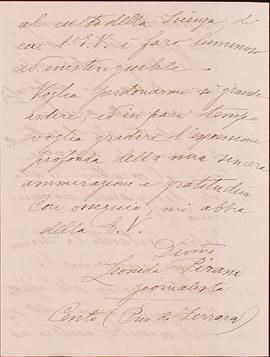 al culto della Scienza di
cui l'E.V. è faro luminoso
ed inestinguibile.
Voglia perdonarmi sì grande
ardire, ed in pari tempo
voglia gradire l'espressione
profonda della mia sincera
ammirazione e gratitudine
Con ossequio mi abbia
della E.V.
Devmo
Leonida Pirani
giornalista
Cento (Prov. di Ferrara)